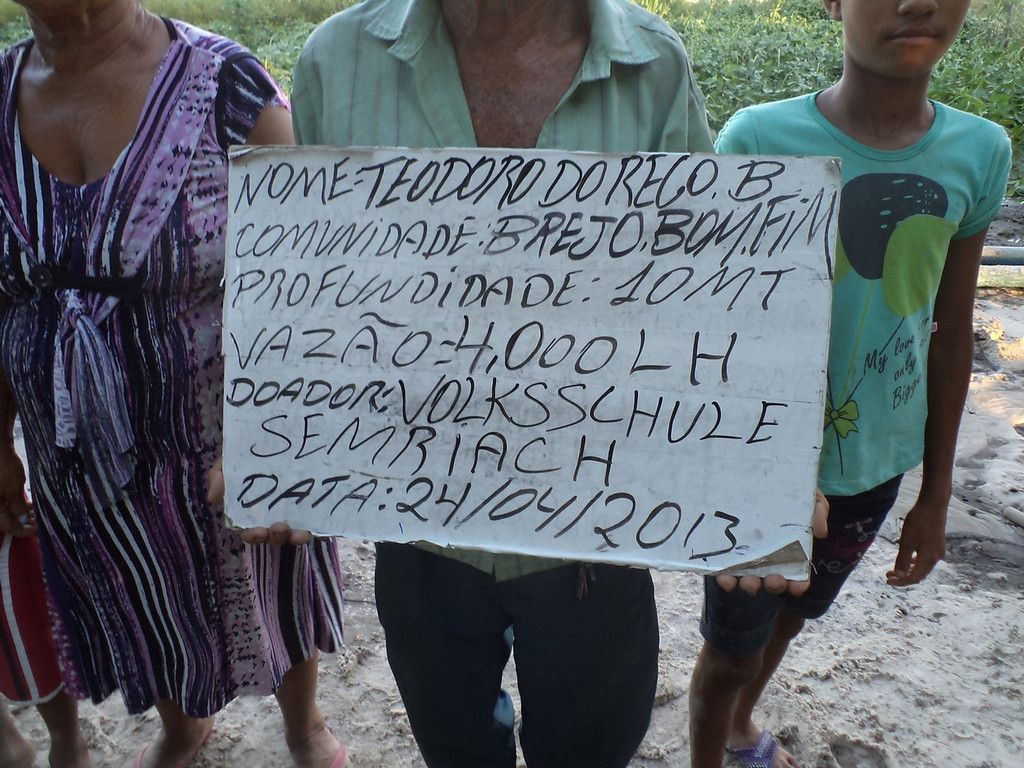 NOME=TEODORO DO REGO. B
COMUNIDADE. BREJO. BOM. FIM
PROFUNDIDADE: 10MT
VAZÃO=4,000 L H
DOADOR: VOLKSSCHULE
SEMRIACH
DATA: 24/04/2013
My love
only